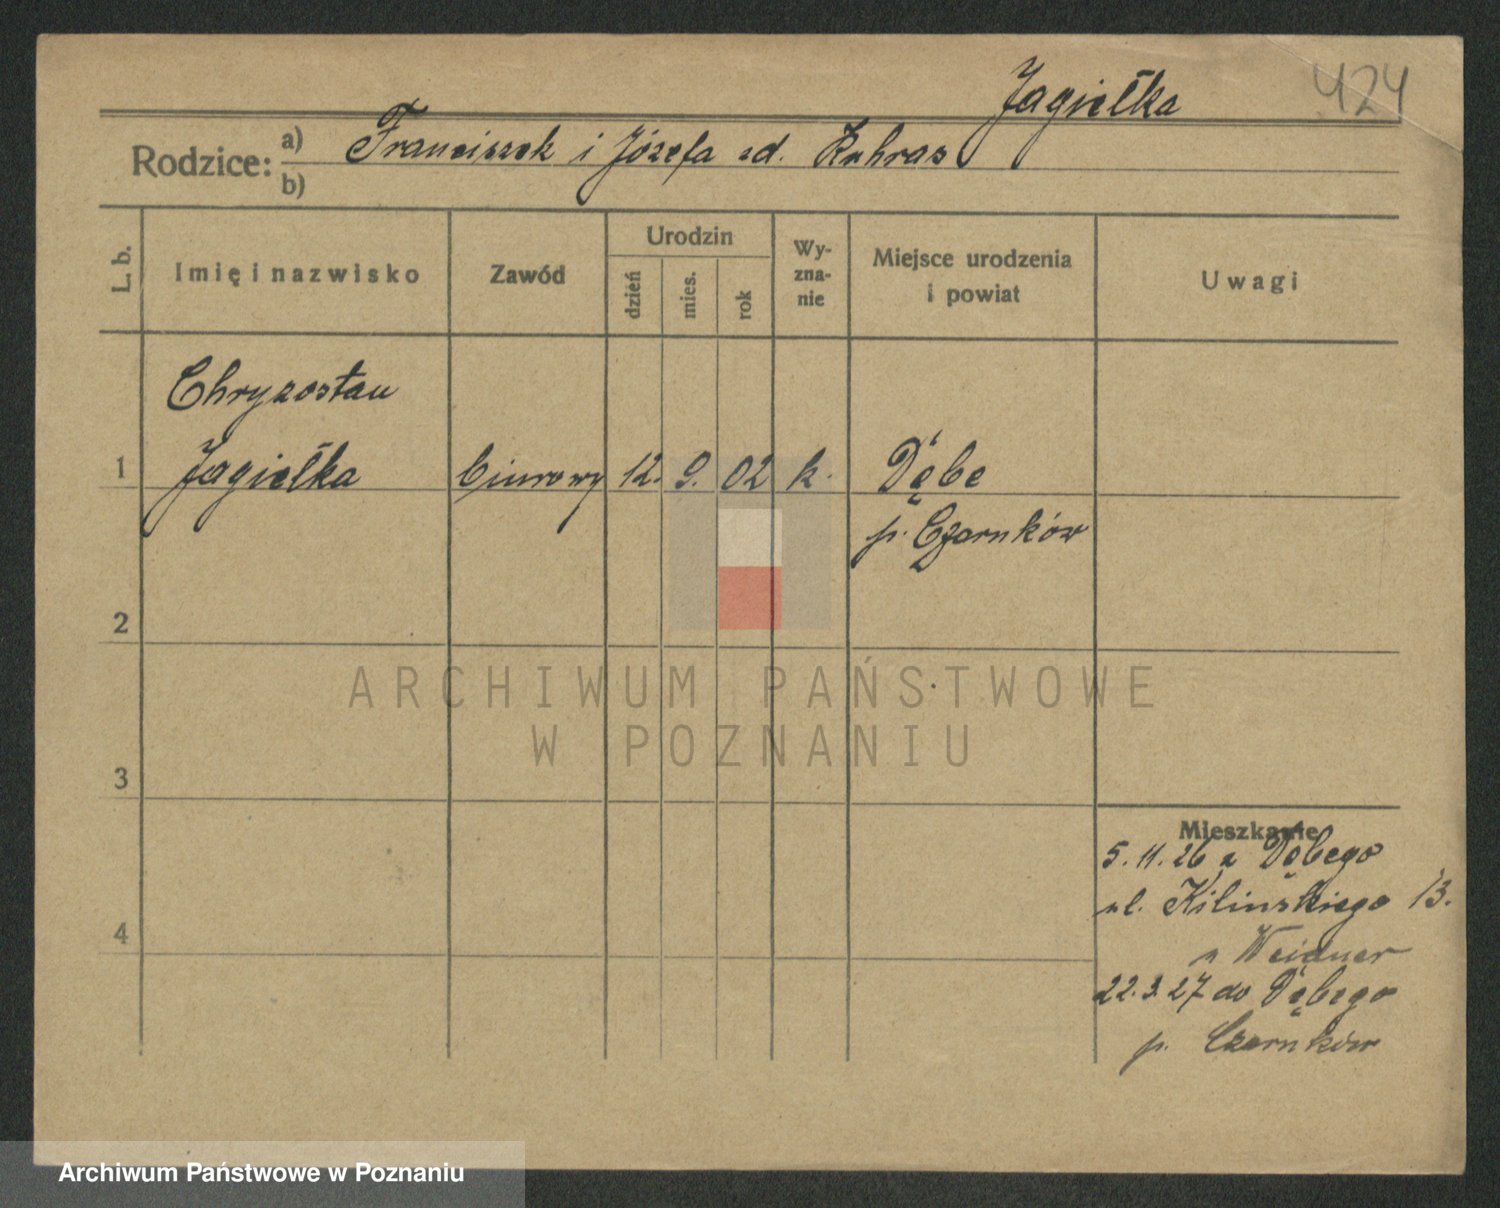 Jagiełka 424
Rodzice: a) Franciszek i Józefa zd. Kuhras
b)
L. b. Imię i nazwisko Zawód Urodzin dzień mies. rok Wyznanie Miejsce urodzenia i powiat Uwagi
Chryzostau
1 Jagiełka biurowy 12. 9. 02 k. Dębe
p. Czarnków
2
ARCHIWUM PAŃSTWOWE
W POZNANIU
3
Mieszkanie
5. 11. 26 z Dębego
4 ul. Kilińskiego 13.
u Weidner
22. 3. 27 do Dębego
p. Czarnków
Archiwum Państwowe w Poznaniu